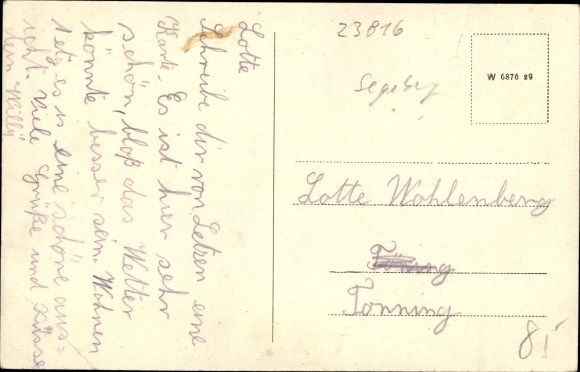 Lotte
Schreibe dir von Letzen eine
Karte. Es ist hier sehr
schön, bloß das Wetter
könnte besser sein. Wohnen
tetz es is eine schöne aus=
icht. Viele Grüße und Küsse
dein Willy
23816
Segeberg
W 6876 29
Lotte Wohlenberg
Tönning
Tonning
8,-